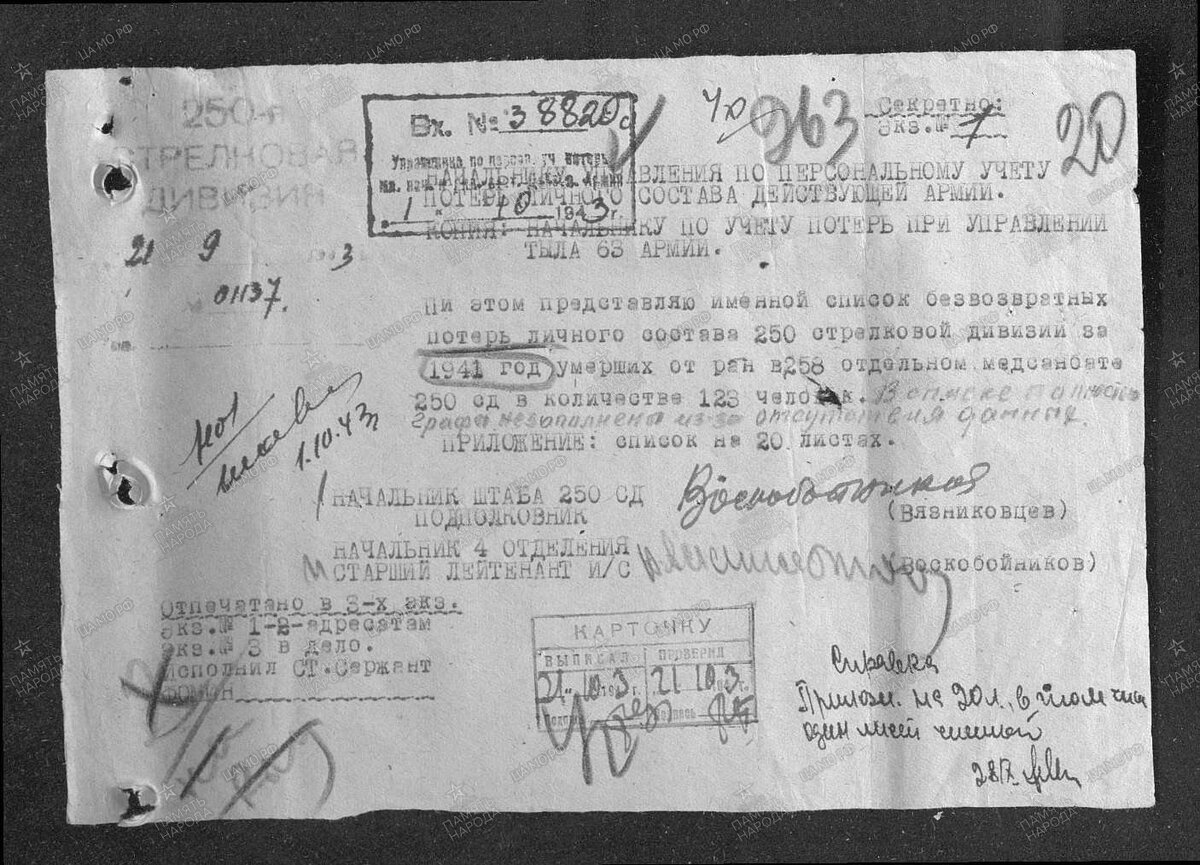 250-я
СТРЕЛКОВАЯ
ДИВИЗИЯ
21 9 1943
01137.
Вх. № 38820с
Управления по персон. уч. потерь
1 " 10 1943 г.
263
Секретно:
Экз.№ 1
20
НАЧАЛЬНИКУ УПРАВЛЕНИЯ ПО ПЕРСОНАЛЬНОМУ УЧЕТУ
ПОТЕРЬ ЛИЧНОГО СОСТАВА ДЕЙСТВУЮЩЕЙ АРМИИ.
КОПИЯ: НАЧАЛЬНИКУ ПО УЧЕТУ ПОТЕРЬ ПРИ УПРАВЛЕНИИ
ТЫЛА 63 АРМИИ.
Пи этом представляю именной список безвозвратных
потерь личного состава 250 стрелковой дивизии за
1941 год умерших от ран в 258 отдельном медсанбате
250 сд в количестве 123 человек. В списке полность
графа незаполнена из-за отсутствия данных.
ПРИЛОЖЕНИЕ: список на 20 листах.
1.10.43
НАЧАЛЬНИК ШТАБА 250 СД
ПОДПОЛКОВНИК
(Вязниковцев)
НАЧАЛЬНИК 4 ОТДЕЛЕНИЯ
СТАРШИЙ ЛЕЙТЕНАНТ И/С
(Воскобойников)
Отпечатано в 3-х экз.
Экз.№ 1-2-адресатам
Экз.№ 3 в дело.
Исполнил СТ.Сержант
КАРТОЧКУ
ВЫПИСАЛ ПРОВЕРИЛ
21 " 10 1943 г. 21 10 1943 г.
Справка
Прилож. на 20 л. в том числ
один лист чистый
ПАМЯТЬ НАРОДА
ЦАМО.РФ